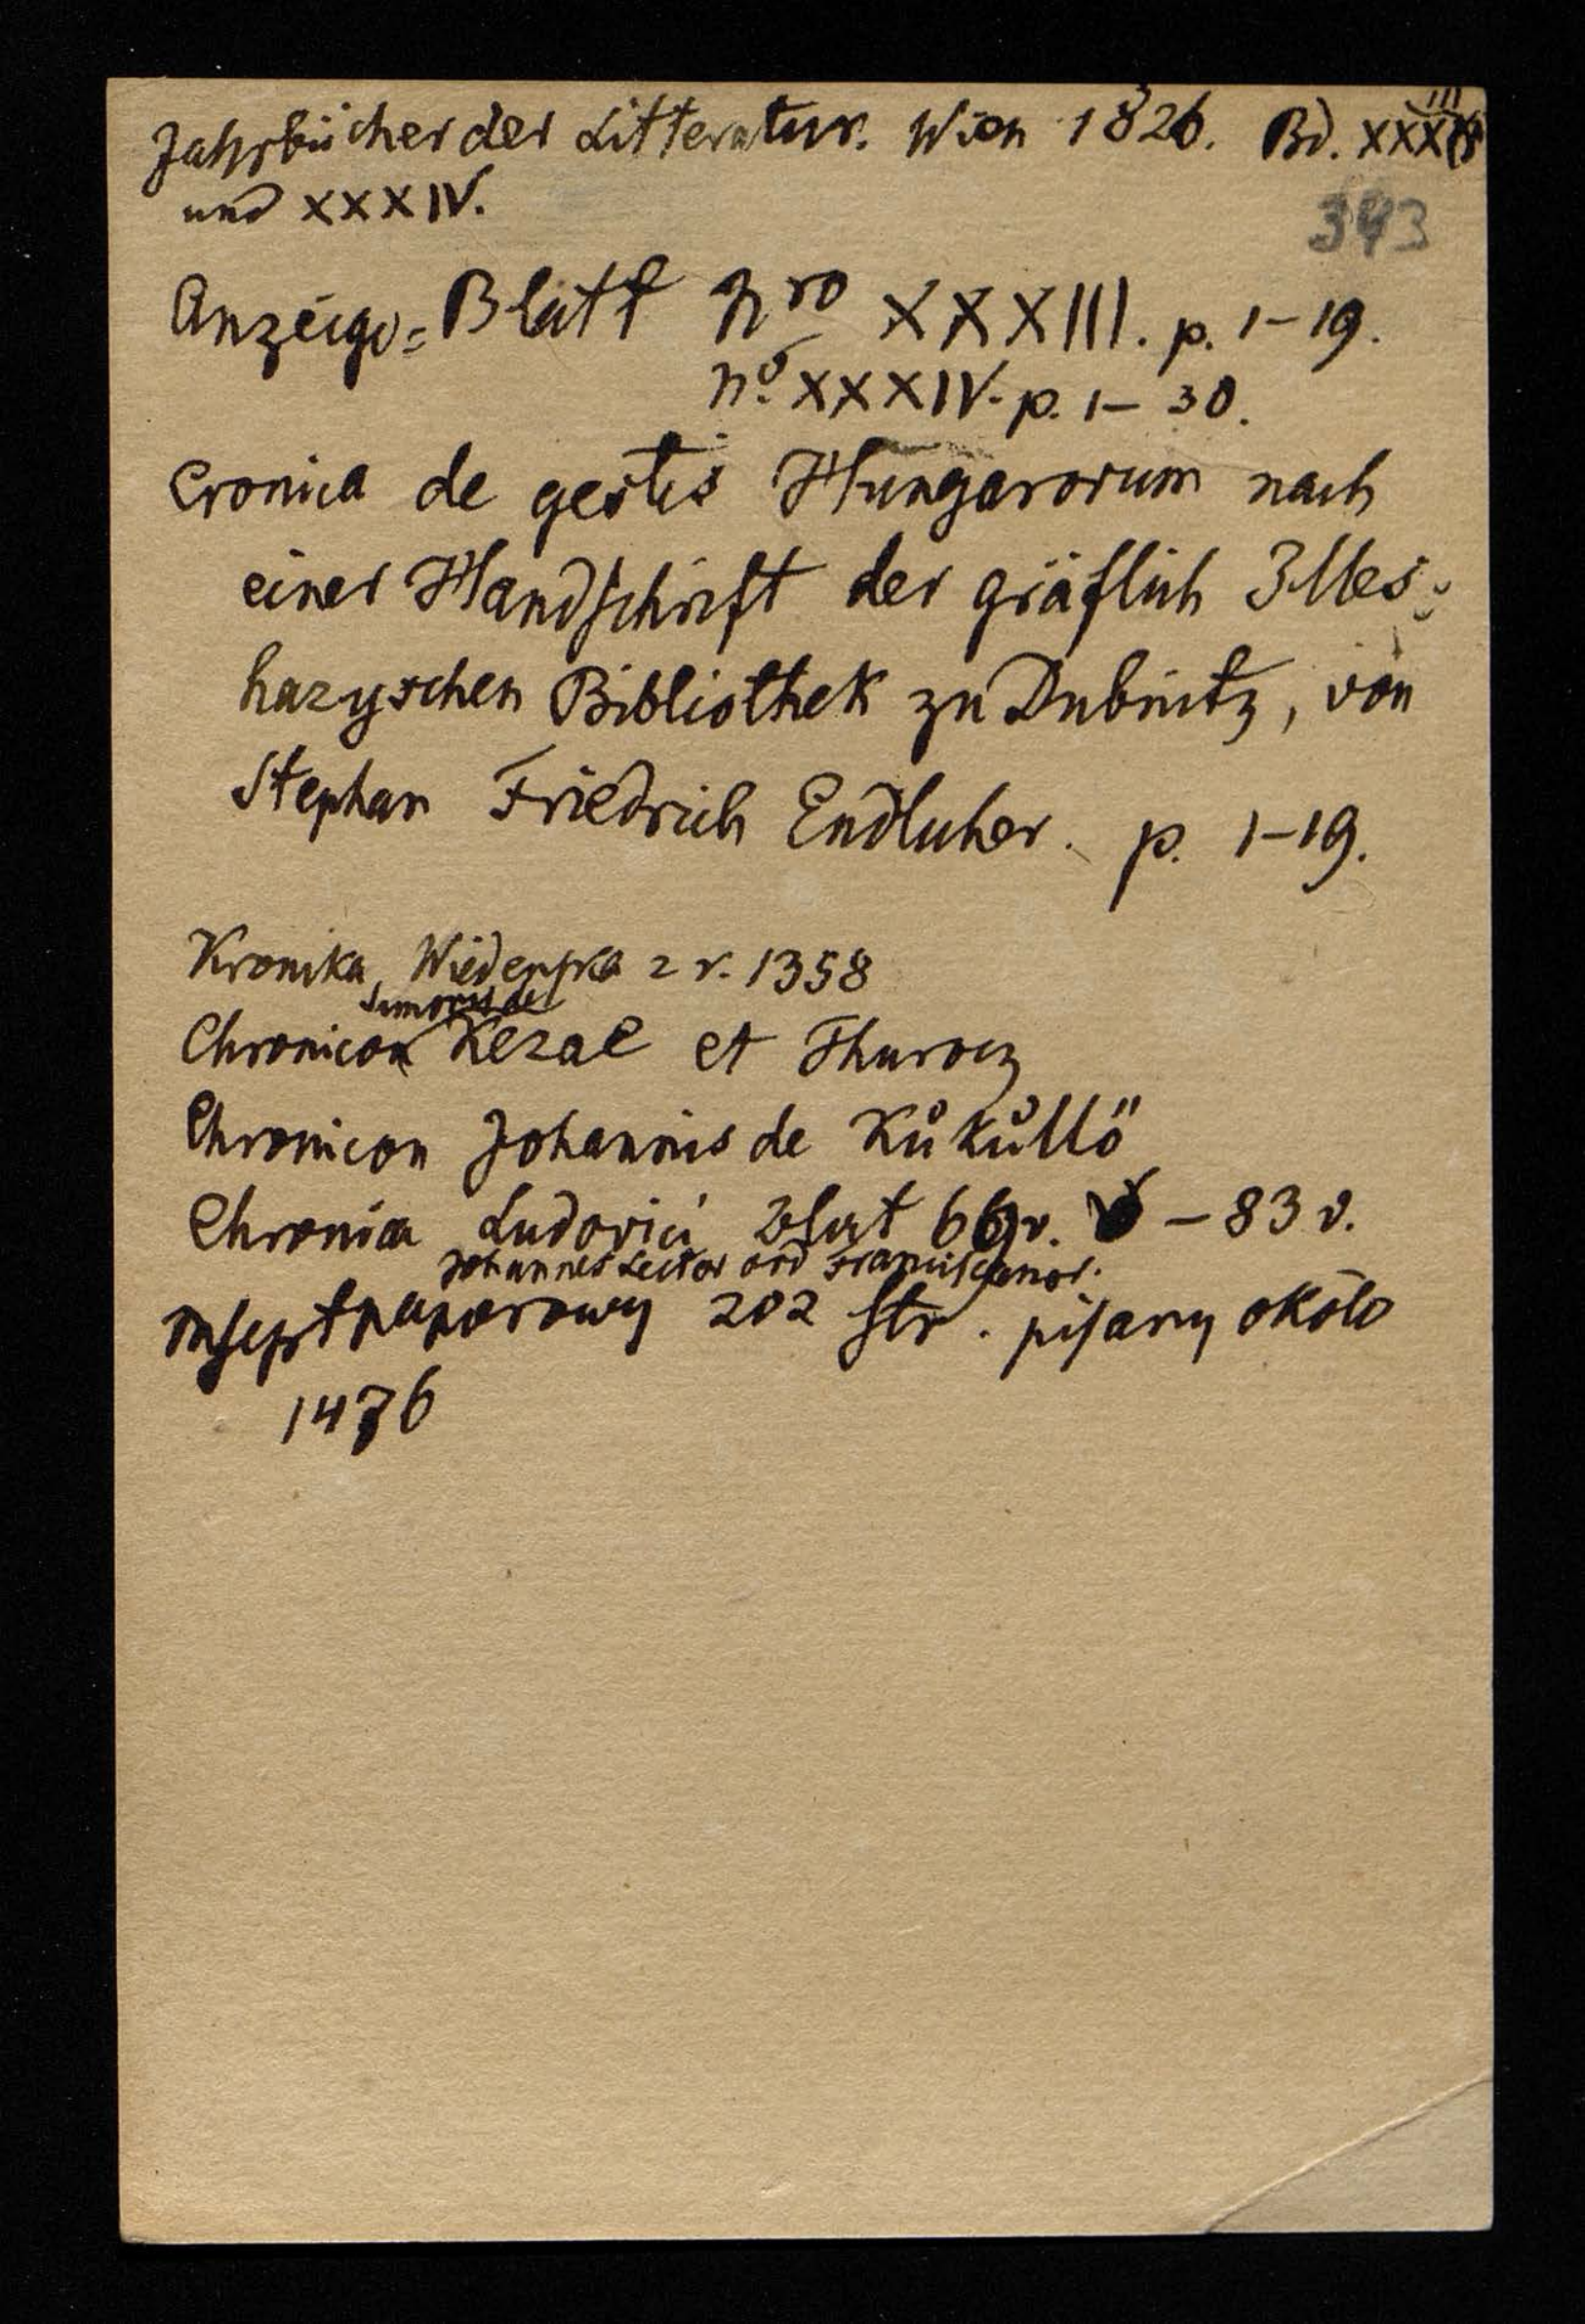 Jahrbücher der Litteratur. Wien 1826. Bd. XXXIII
und XXXIV.
393
Anzeige=Blatt Nro XXXIII. p. 1–19.
No. XXXIV. p. 1– 30.
Cronica de gestis Hungarorum nach
einer Handschrift der gräflich Illes=
hazyschen Bibliothek zu Dubnitz, von
Stephan Friedrich Endlicher. p. 1–19.
Kronika Wiedeńska z r. 1358
Simonis de
Chronicon Kezae et Thurocz
Chronicon Johannis de Kükullö
Chronica Ludovici Blatt 66v. – 83 v.
Johannes Lector ord Franciscanor.
Mscpt papierowy 202 str. pisany około
1476